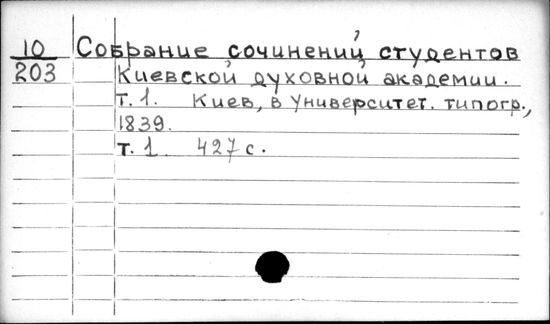 10 Собрание сочинений студентов
203 Киевской духовной академии.
т. 1. Киев, в университет. типогр.,
1839.
т. 1 427 с.